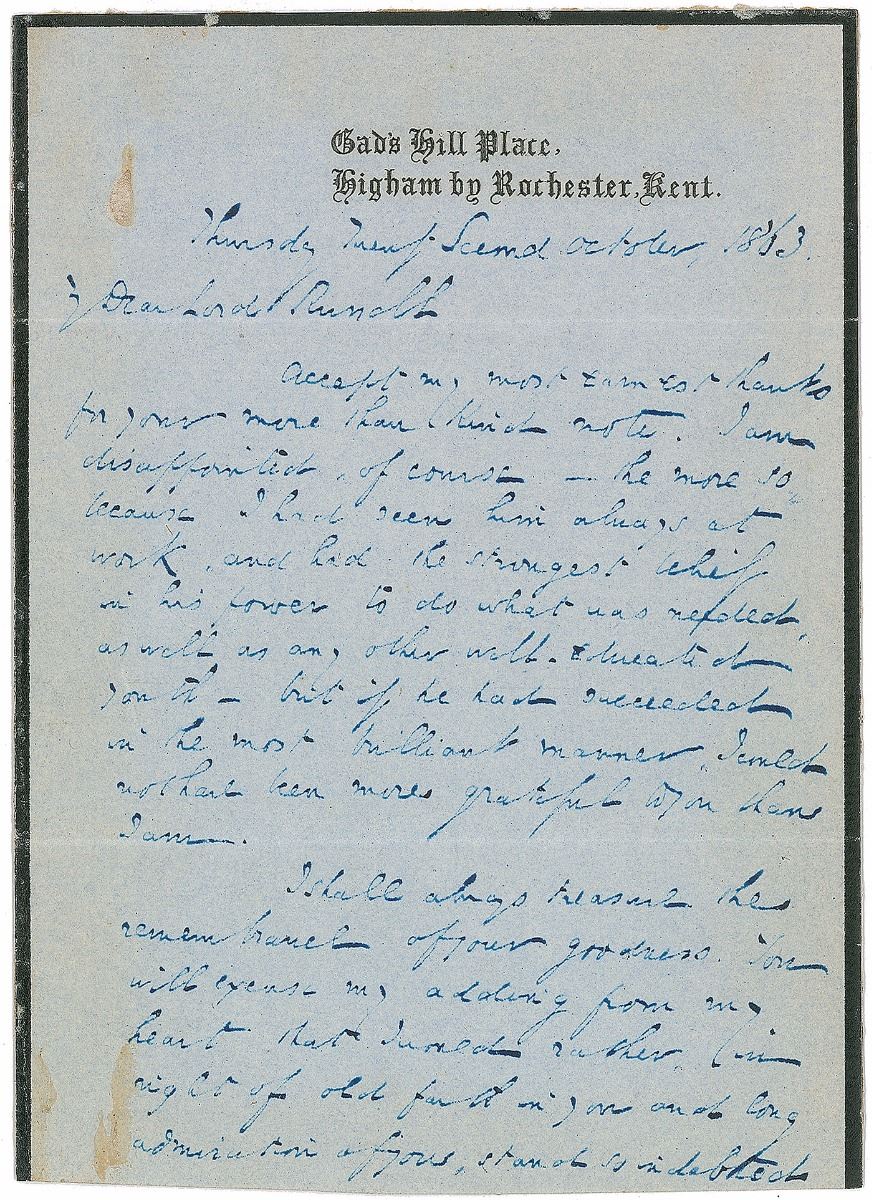 Gad's Hill Place,
Higham by Rochester, Kent.
Thursday Twenty Second October, 1863.
My Dear Lord Russell
Accept my most earnest thanks
for your more than kind note. I am
disappointed, of course – the more so,
because I had seen him always at
work, and had the strongest belief
in his power to do what was needed,
as well as any other well-educated
youth – but if he had succeeded
in the most brilliant manner, I could
not have been more grateful to you than
I am.
I shall always treasure the
remembrance of your goodness. You
will excuse my adding from my
heart that I would rather (in
right of old faith in you and long
admiration of you, stand so indebted